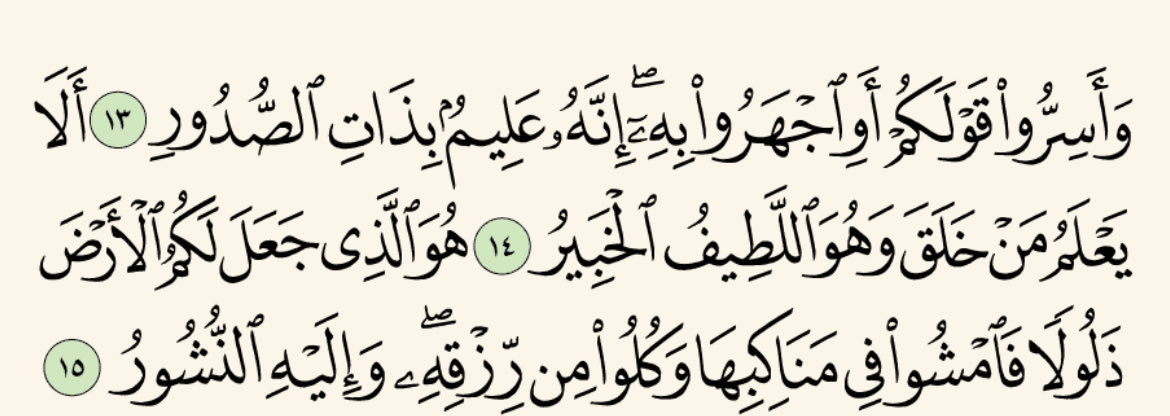 وَأَسِرُّوا۟ قَوْلَكُمْ أَوِ ٱجْهَرُوا۟ بِهِۦٓ ۖ إِنَّهُۥ عَلِيمٌۢ بِذَاتِ ٱلصُّدُورِ ١٣ أَلَا
يَعْلَمُ مَنْ خَلَقَ وَهُوَ ٱللَّطِيفُ ٱلْخَبِيرُ ١٤ هُوَ ٱلَّذِى جَعَلَ لَكُمُ ٱلْأَرْضَ
ذَلُولًا فَٱمْشُوا۟ فِى مَنَاكِبِهَا وَكُلُوا۟ مِن رِّزْقِهِۦ ۖ وَإِلَيْهِ ٱلنُّشُورُ ١٥